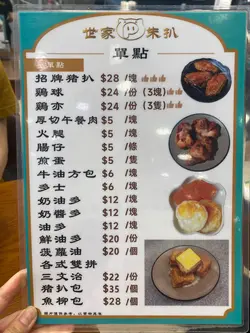 世家朱扒
單點
單點
招牌豬扒 $28 /塊
鷄球 $24 /份 (3塊)
鷄亦 $24 /份 (3隻)
厚切午餐肉 $5 /塊
火腿 $5 /塊
腸仔 $5 /條
煎蛋 $5 /隻
牛油方包 $6 /塊
多士 $6 /塊
奶油多 $12 /塊
奶醬多 $12 /塊
油多 $12 /塊
鮮油多 $20 /份
菠蘿油 $20 /個
各式雙拼
三文治 $22 /份
豬扒包 $35 /個
魚柳包 $28 /個